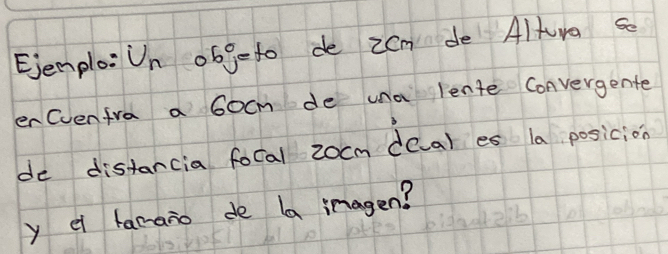 Ejemplo: Un objeto de 2cm de Altura se
encuentra a 60cm de una lente convergente
de distancia focal 20cm ¿cual es la posición
y el tamaño de la imagen?